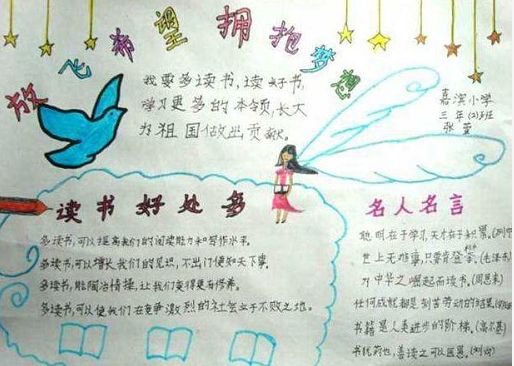 放飞希望 拥抱梦想
我要多读书,读好书,
学习更多的本领,长大
为祖国做出贡献。
嘉滨小学
三年(2)班
张萱
读书好处多
多读书,可以提高我们的阅读能力和写作水平。
多读书,可以增长我们的见识,不出门便知天下事。
多读书,能陶冶情操,让我们变得更有修养。
多读书,可以使我们在竞争激烈的社会立于不败之地。
名人名言
聪明在于学习,天才在于积累。
世上无难事,只要肯登攀。(毛泽东)
为中华之崛起而读书。(周恩来)
任何成就都是刻苦劳动的结果。
书籍是人类进步的阶梯。(高尔基)
书犹药也,善读之可以医愚。(刘向)